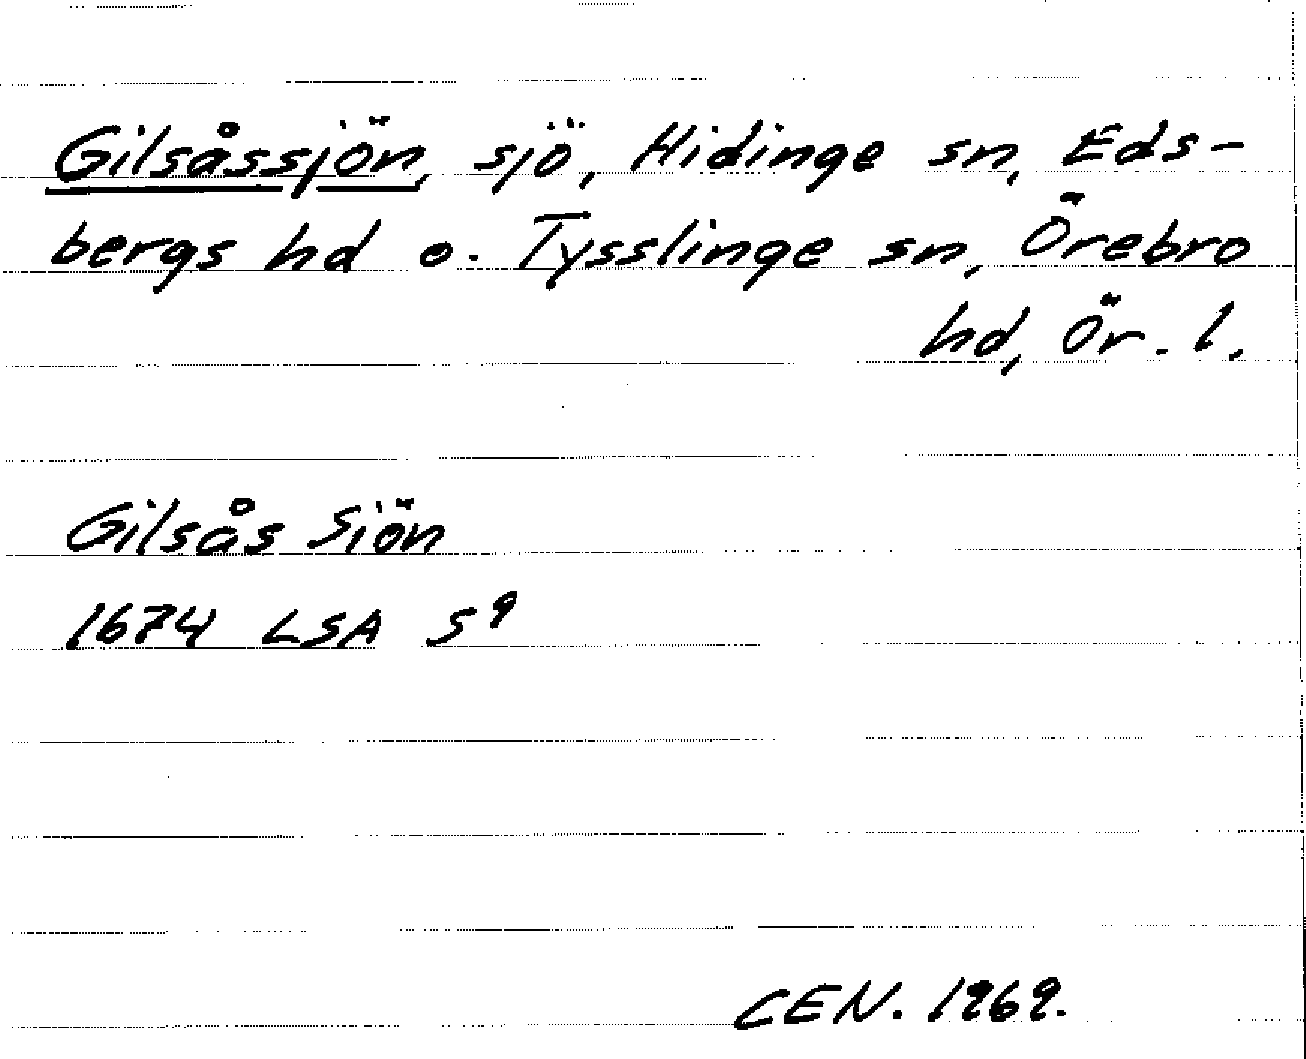 Gilsåssjön, sjö, Hidinge sn, Eds-
bergs hd o. Tysslinge sn, Örebro
hd, Ör. l.
Gilsås Siön
1674 LSA S⁹
CEN. 1969.